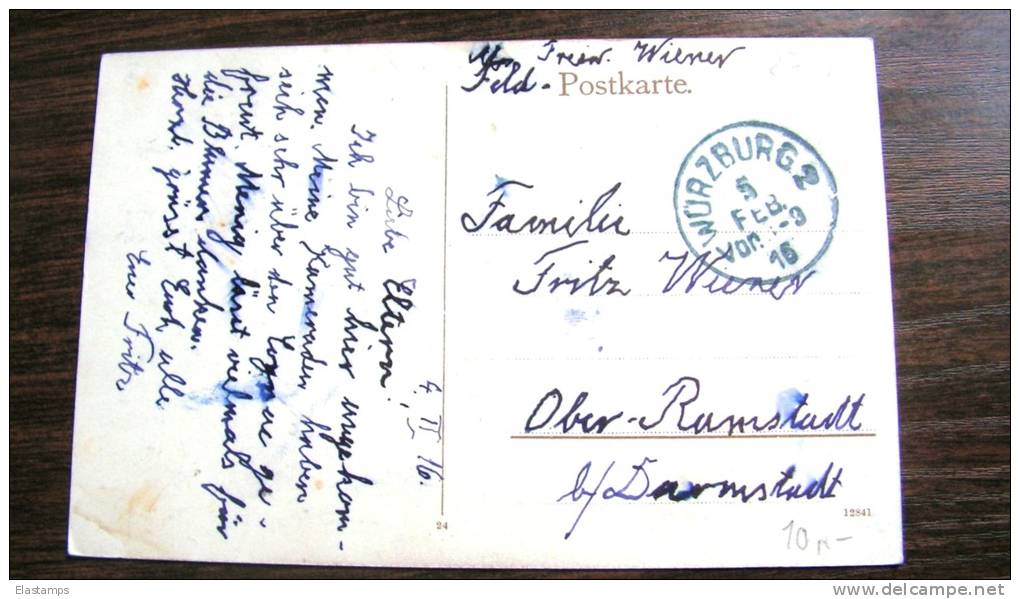 4. II. 16.
Liebe Eltern!
Ich bin gut hier angekom-
men. Meine Kameraden haben
sich sehr über den Cognac ge-
freut. Menig lässt vielmals für
die Blumen danken.
Herzl. grüsst Euch alle
Euer Fritz
Freiw. Wiener
Feld - Postkarte.
WÜRZBURG 2
5
FEB.
Vor. 9
16
Familie
Fritz Wiener
Ober-Ramstadt
b/Darmstadt
24
12841
10,-
Elastamps
www.delcampe.net